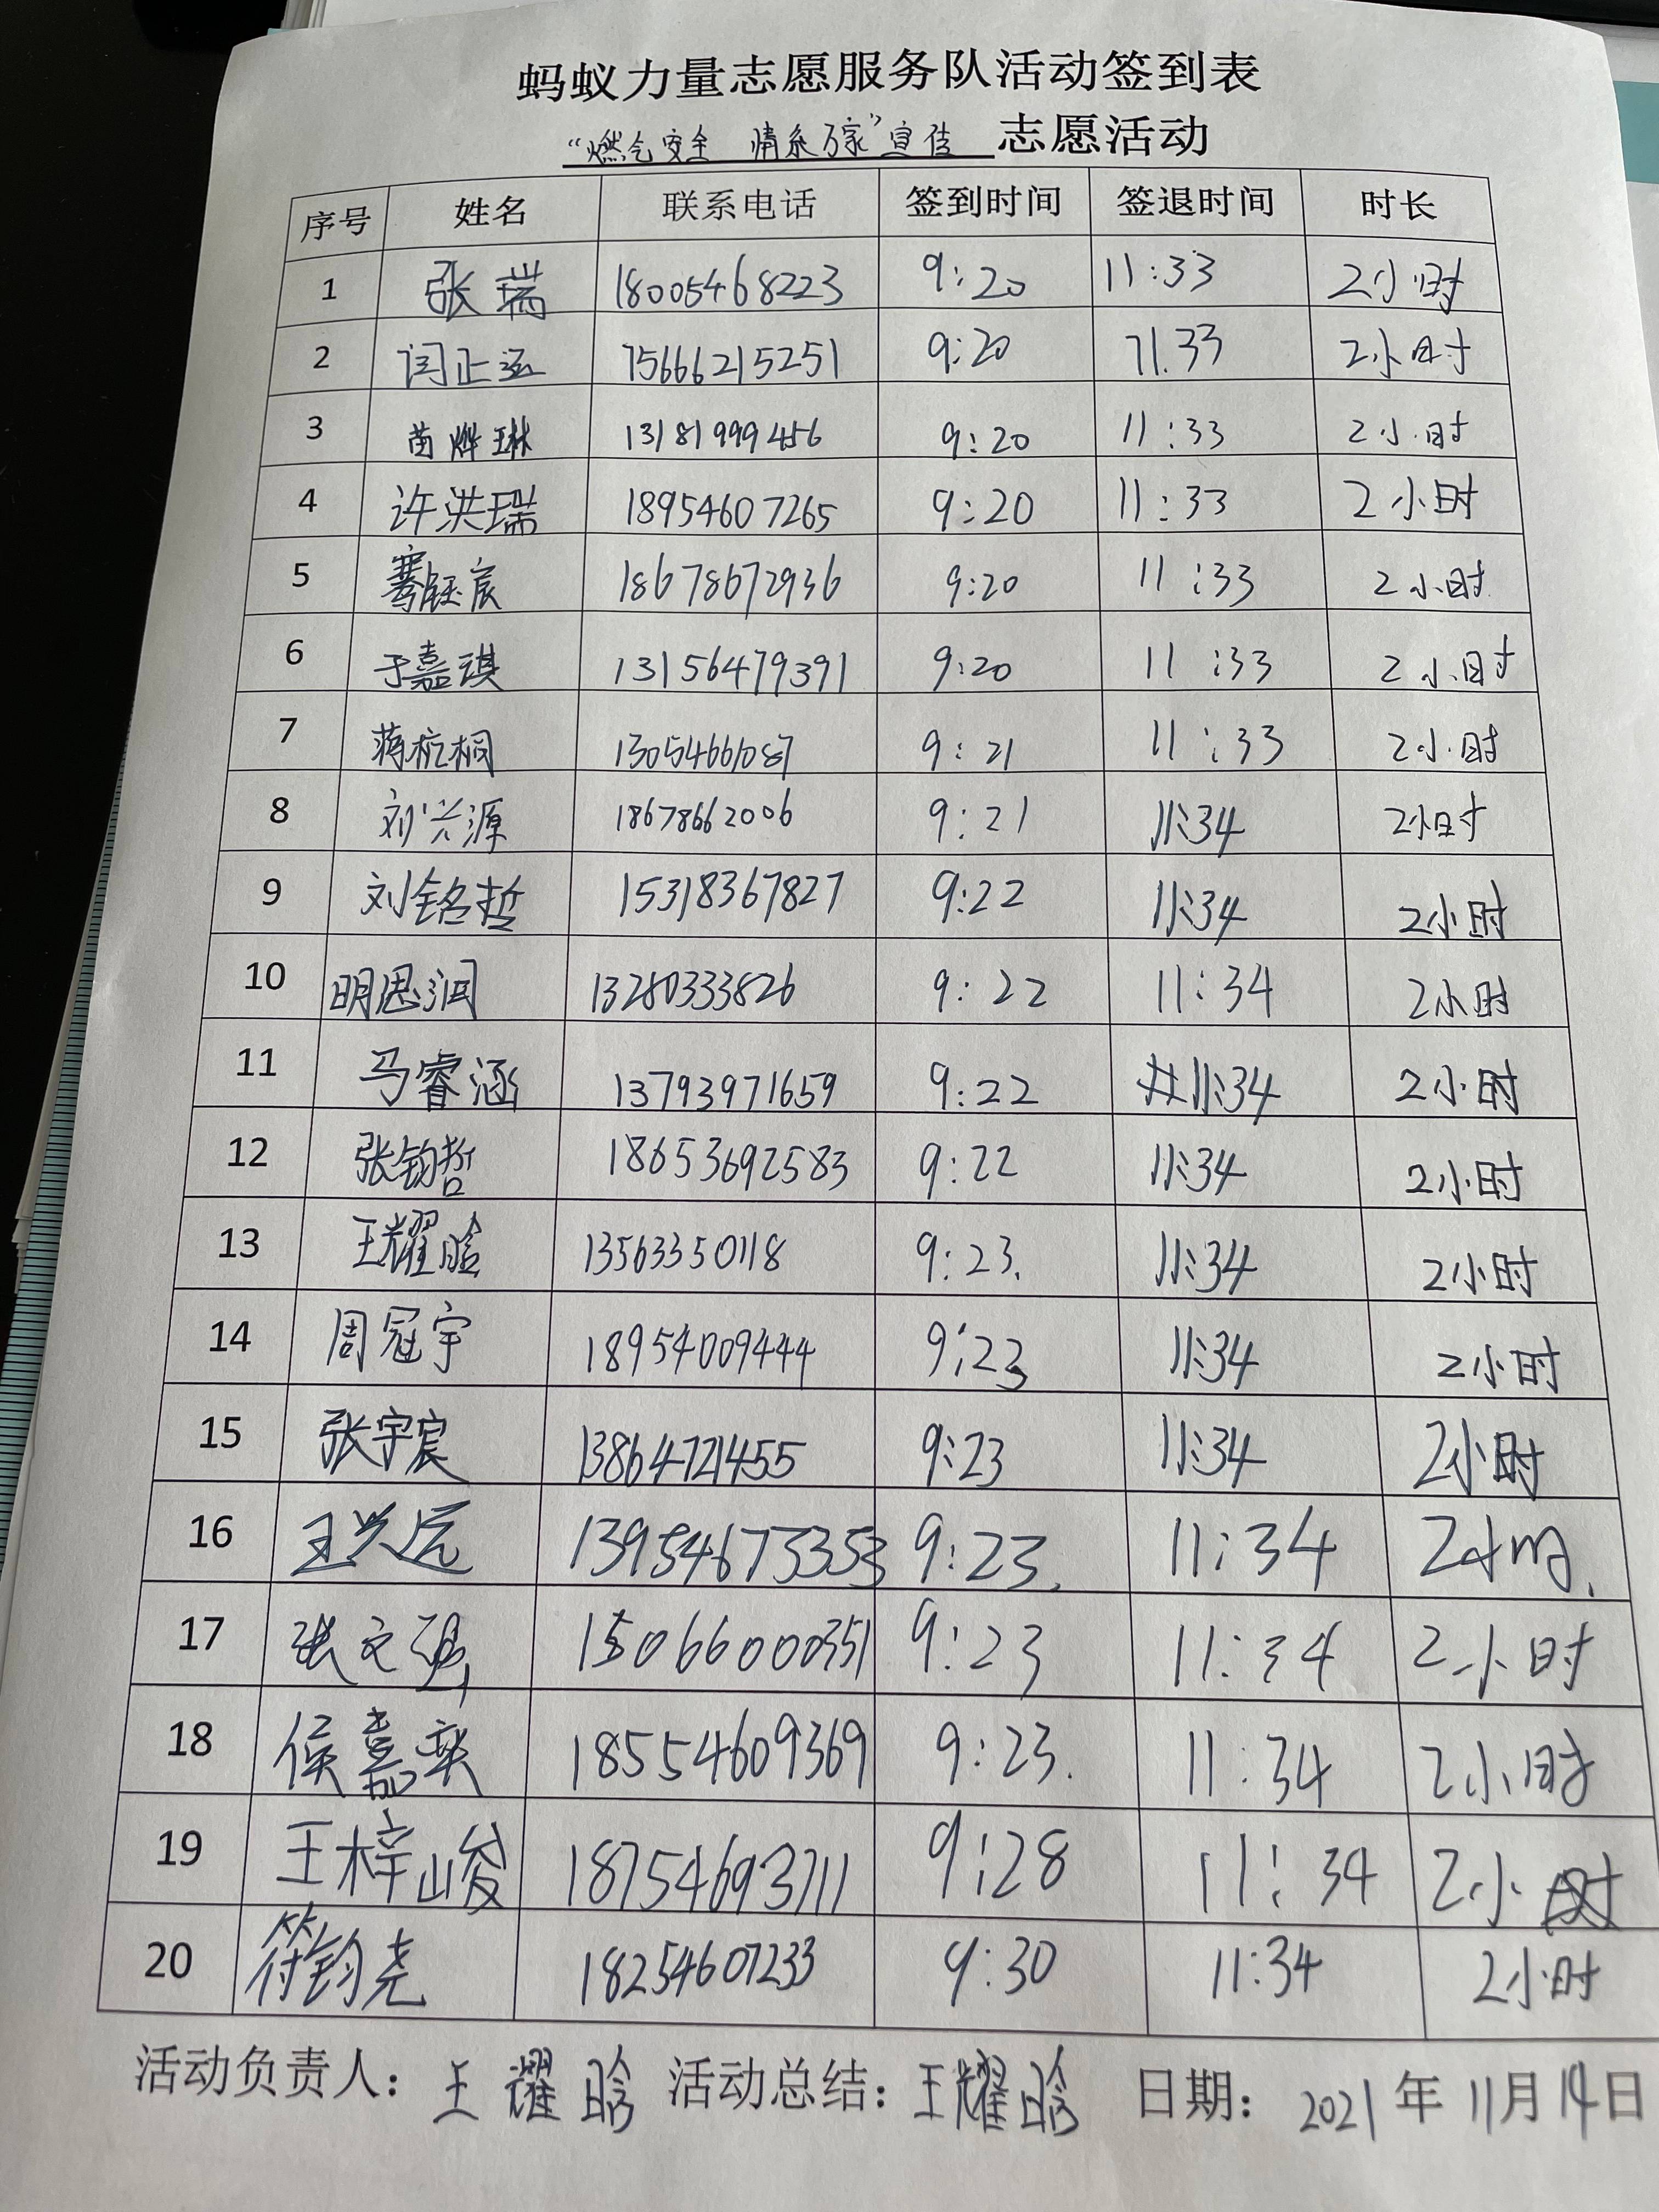 蚂蚁力量志愿服务队活动签到表
“燃气安全 情系万家”宣传 志愿活动
序号 姓名 联系电话 签到时间 签退时间 时长
1 张瑞 18005468223 9:20 11:33 2小时
2 闫正 15666215251 9:20 11.33 2小时
3 苗烨琳 13181999456 9:20 11:33 2小时
4 许洪瑞 18954607265 9:20 11:33 2小时
5 钰宸 18678672936 9:20 11:33 2小时
6 于嘉祺 13156479391 9:20 11:33 2小时
7 蒋杭桐 13054661087 9:21 11:33 2小时
8 刘兴源 18678662006 9:21 11:34 2小时
9 刘铭哲 15318367827 9:22 11:34 2小时
10 明思润 13280333826 9:22 11:34 2小时
11 马睿涵 13793971659 9:22 11:34 2小时
12 张钧哲 18653692583 9:22 11:34 2小时
13 王耀晗 13563350118 9:23. 11:34 2小时
14 周冠宇 18954009444 9:23 11:34 2小时
15 张宇宸 13864721455 9:23 11:34 2小时
16 王兴远 13954673353 9:23. 11:34 2小时.
17 张文强 15066000351 9:23 11:34 2小时
18 侯嘉奕 18554609369 9:23. 11:34 2小时
19 王梓峻 18754693711 9:28 11:34 2小时
20 符钧尧 18254607233 9:30 11:34 2小时
活动负责人：王耀晗 活动总结：王耀晗 日期：2021年11月14日